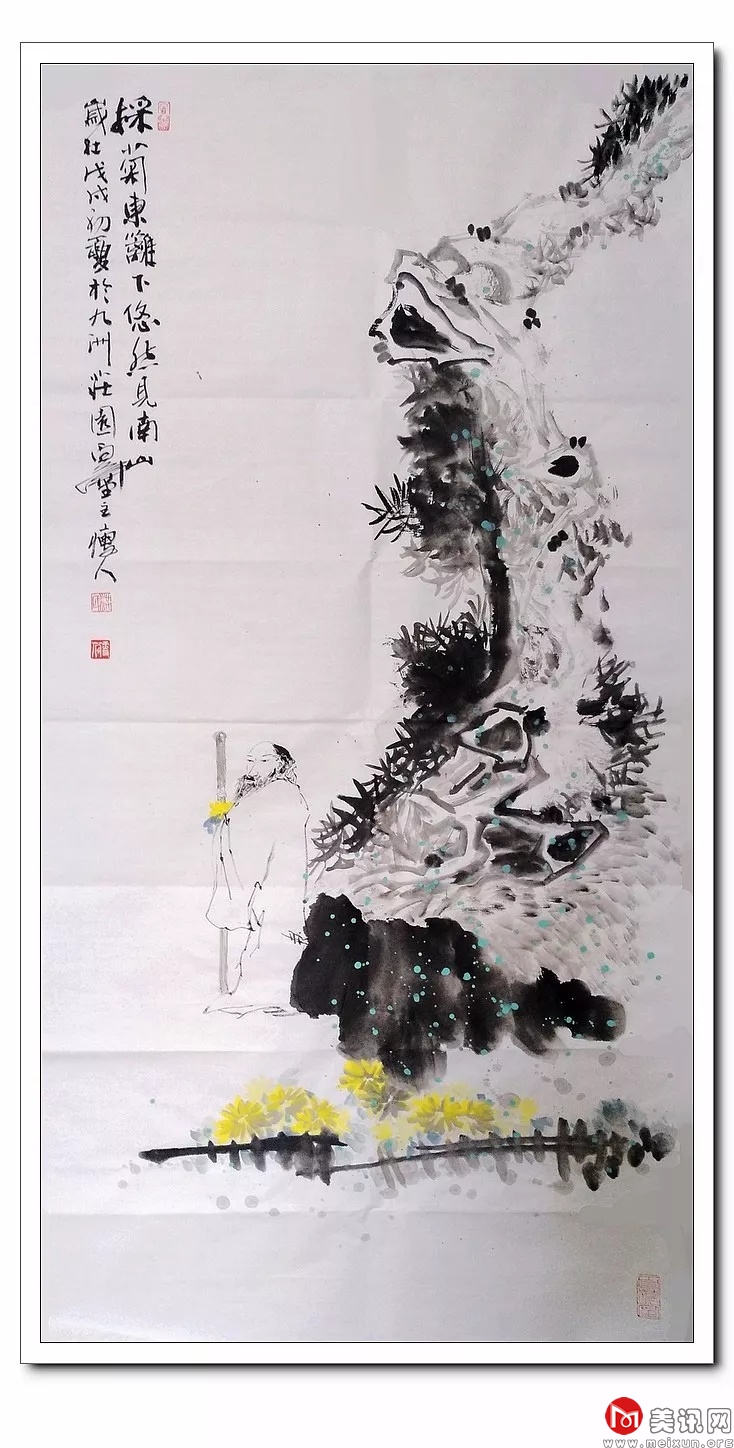 採菊東籬下悠然見南山
歲在戊戌初夏於九洲莊園
堂主
人
美讯网
www.meixun.org